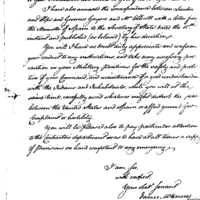 I have also annexed the Correspondence between Louden
and Hope and Governor Gayoso and Mr Ellicott with a letter from
the Minister of Spain to the Secretary of State dated the 11th
instant and published (as believed) by his direction.
You will I have no doubt duly appreciate and conform
your conduct to my instructions, and take every necessary pre-
caution in your Military positions for the safety and protec-
tion of your Command, and maintenance of a good understanding
with the Indians and Inhabitants. You will at the
same time, carefully avoid whatever might disturb the peace
between the United States and Spain or afford ground for
Complaint or hostility.
You will be pleased also to pay particular attention
to the Contractors department so as to have at all times a supply
of Provision on hand competent to any emergency.
I am Sir,
with respect,
Your obed servant
James McHenry